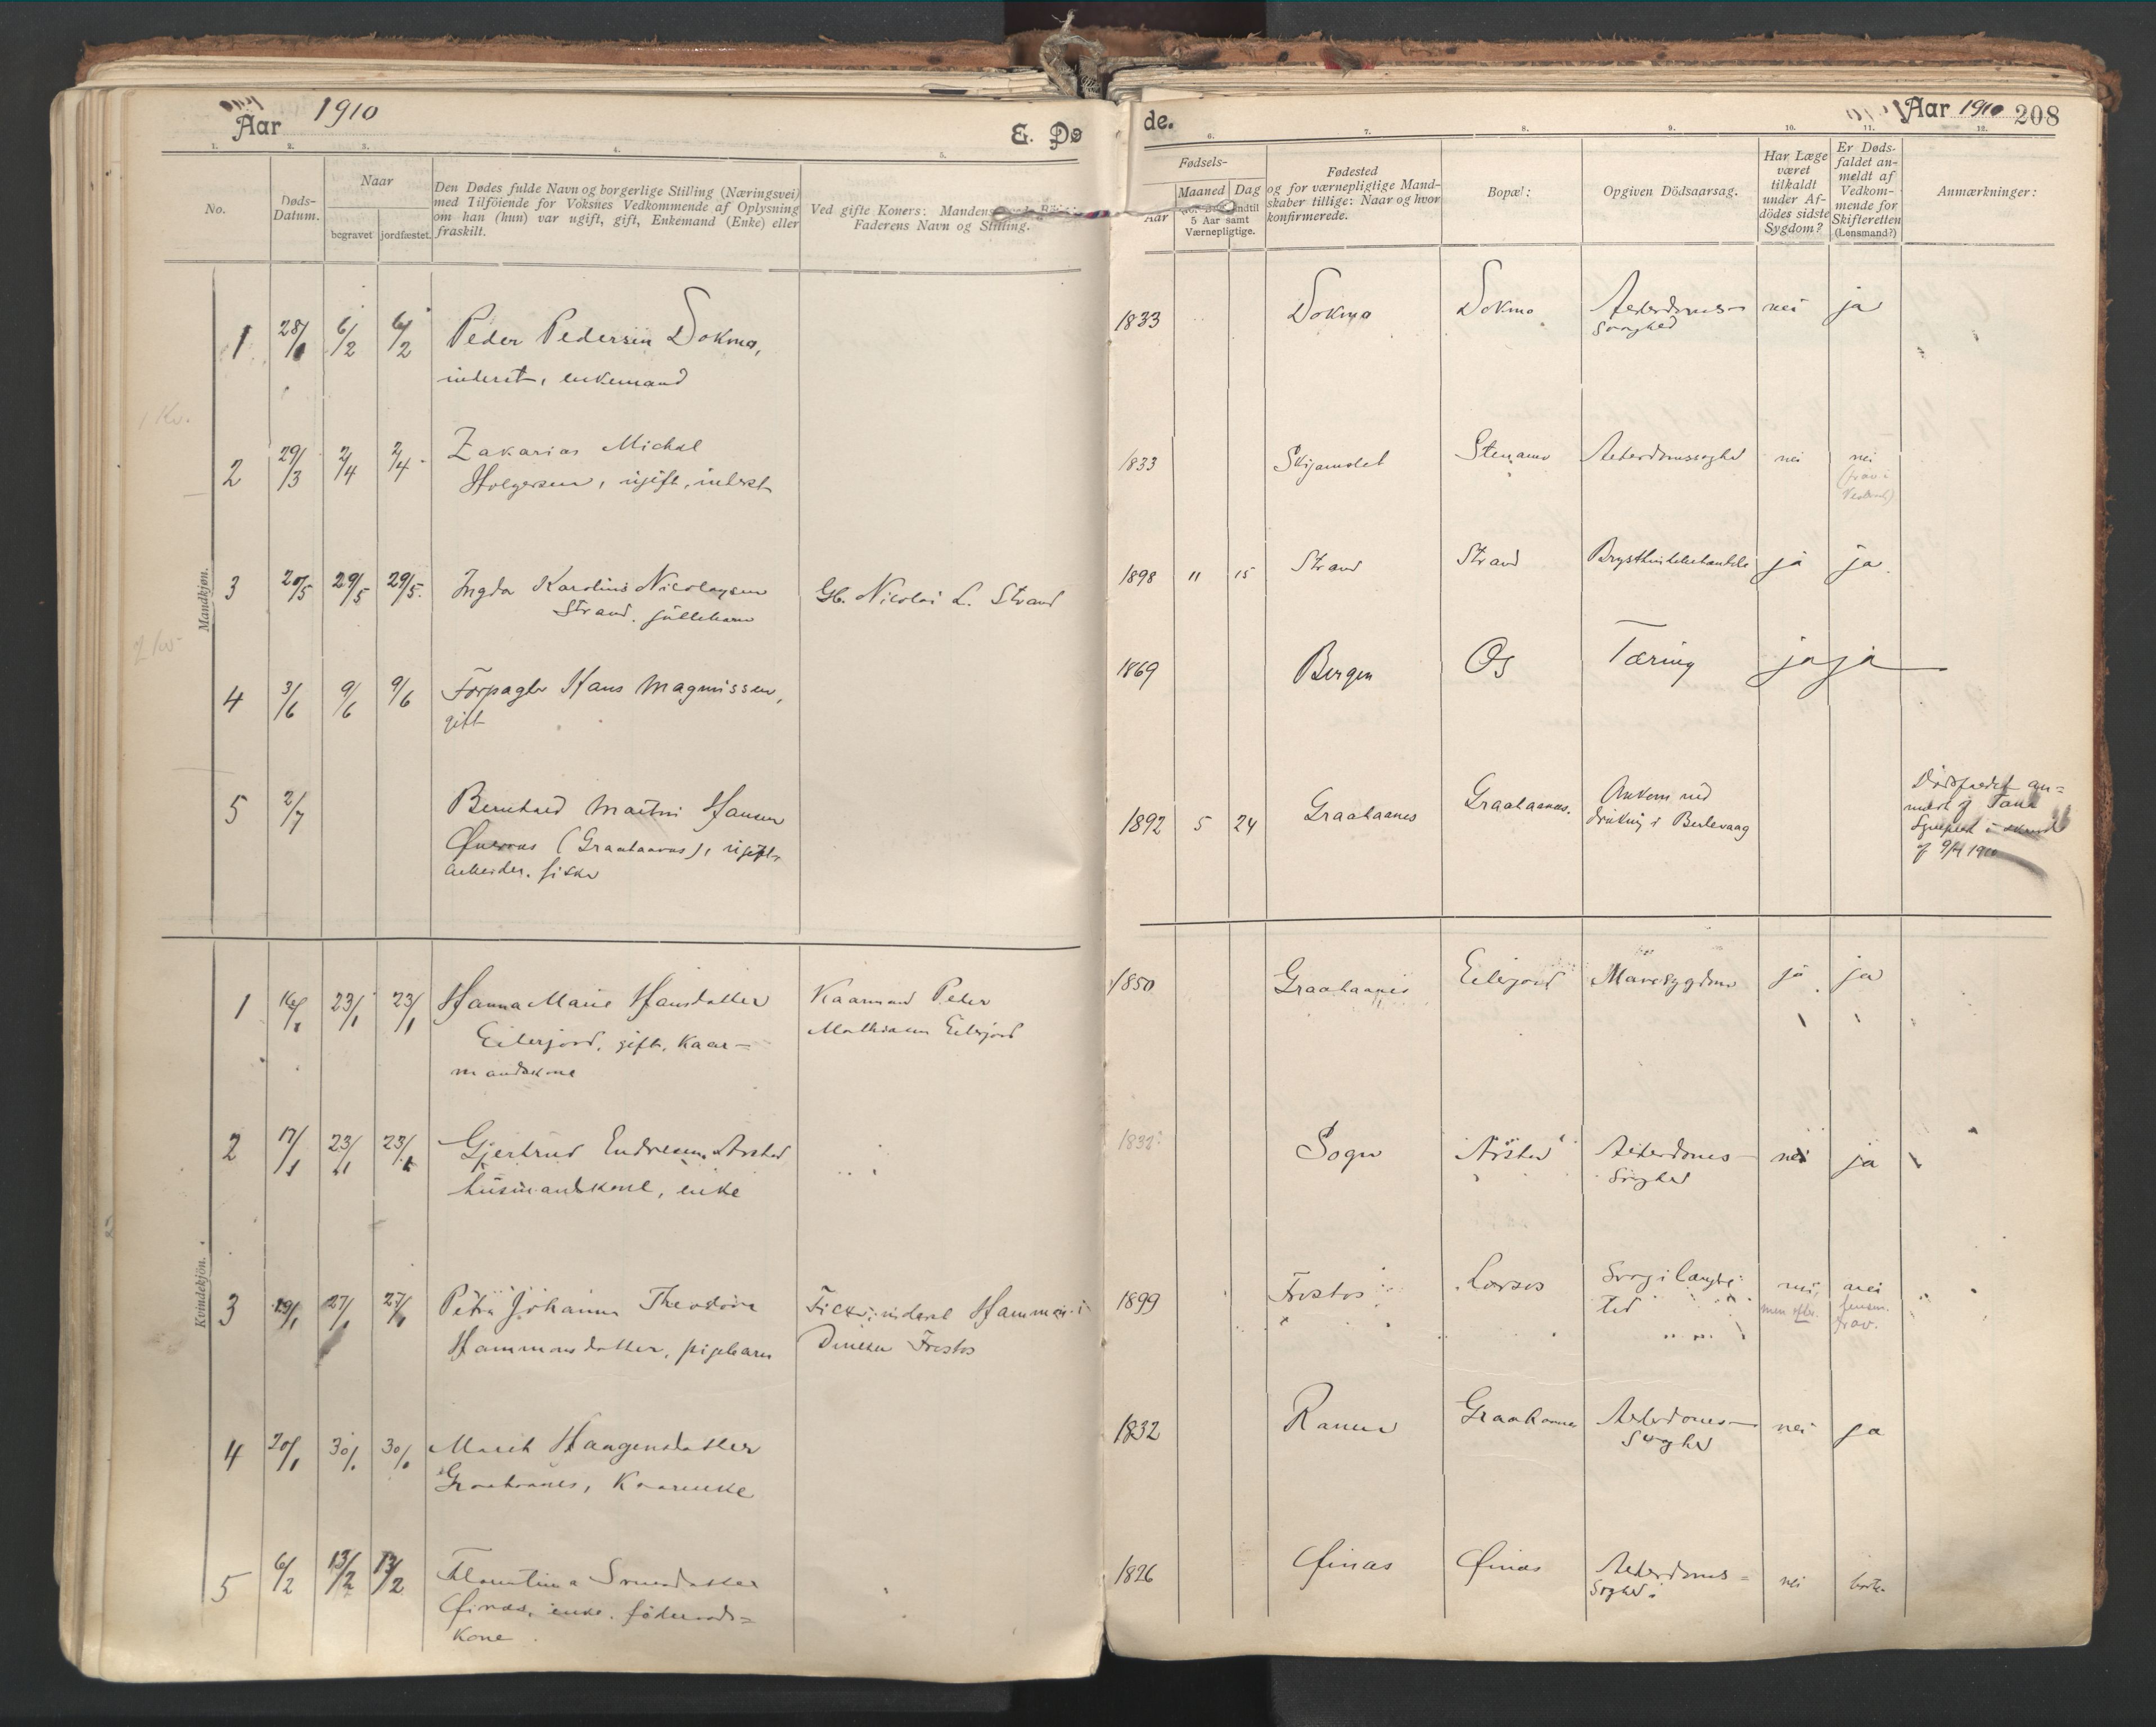 Aar 1910
E. Dø
de.
Aar 1910 208
1. 2. 3. 4. 5. 6. 7. 8. 9. 10. 11. 12.
No.
Døds-
Datum.
Naar
begravet jordfæstet.
Den Dødes fulde Navn og borgerlige Stilling (Næringsvei)
med Tilföiende for Voksnes Vedkommende af Oplysning
om han (hun) var ugift, gift, Enkemand (Enke) eller
fraskilt.
Ved gifte Koners: Mandens
Faderens Navn og Stilling.
Fødsels-
Aar
Maaned Dag
5 Aar samt
Værnepligtige.
Fødested
og for værnepligtige Mand-
skaber tillige: Naar og hvor
konfirmerede.
Bopæl:
Opgiven Dödsaarsag.
Har Læge
været
tilkaldt
under Af-
dödes sidste
Sygdom?
Er Døds-
faldet an-
meldt af
Vedkom-
mende for
Skifteretten
(Lensmand?)
Anmærkninger:
Mandkjøn.
1 28/1 6/2 6/2 Peder Pedersen Dokmo,
inderst, enkemand
1833 Dokmo Dokmo Alderdoms-
svaghed nei ja
2 29/3 2/4 2/4 Zakarias Michal
Holgersen, ugift, inderst
1833 Skjamolet Alderdomssvaghed nei nei
3 20/5 29/5 29/5. Ingda Karolius Nicolaysen
Strand.
Gb. Nicolai L. Strand
1898 11 15 Strand Strand ja ja.
4 3/6 9/6 9/6 Forpagter Hans Magnussen,
gift
1869 Bergen Os Tæring ja ja
5 2/7 Bernhard Martin Hansen
(Graataanæs), ugift,
arbeider. fisker
1892 5 24 Graataanes Graataanæs. Omkom ved
drukning i Berlevaag
Dödsfaldet an=
1910
Kvindekjön.
1 16/1 23/1 23/1 Hanna Marie Hansdatter
Eiterjord, gift, Kaar=
mandskone
Kaarmand Peter
Mathisen Eiterjord
1850 Graataanes Eiterjord Mavesygdom ja ja
2 17/1 23/1 23/1 Gjertrud Endresen Arstad
husmandskone, enke
Sogn Årstad Alderdoms-
svaghed nei ja
3 19/1 27/1 27/1 Petra Johanna Theodora
Hammonsdatter, pigebarn
inderst Hammon
Dinesen Fristos
1899 Fristos Svag i længere
Tid nei, nei
4 20/1 30/1 30/1 Marit Haagensdatter
Graataanes, Kaarenke
1832 Ranen Graataanes Alderdoms-
svaghed nei ja
5 6/2 13/2 13/2
Øinas, enke. föderaads=
kone
1826 Øinas Øinas Alderdoms=
svaghed nei